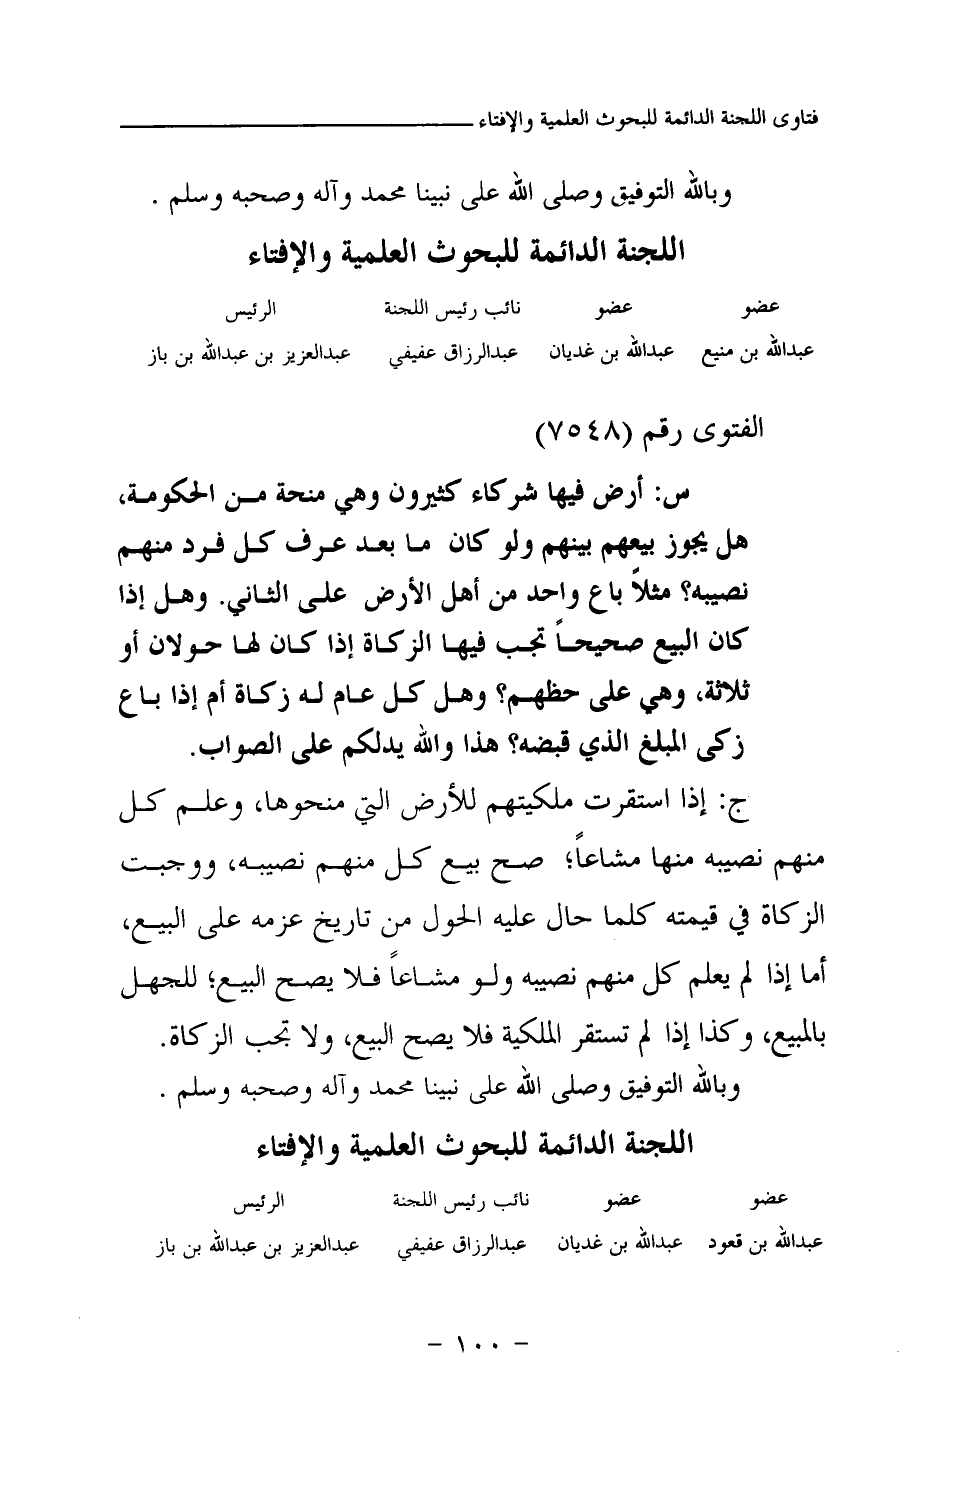 فتاوى اللجنة الدائمة للبحوث العلمية والإفتاء
وبالله التوفيق وصلى الله على نبينا محمد وآله وصحبه وسلم .
اللجنة الدائمة للبحوث العلمية والإفتاء
عضو عضو نائب رئيس اللجنة الرئيس
عبدالله بن منيع عبدالله بن غديان عبدالرزاق عفيفي عبدالعزيز بن عبدالله بن باز
الفتوى رقم (٧٥٤٨)
س: أرض فيها شركاء كثيرون وهي منحة من الحكومة،
هل يجوز بيعهم بينهم ولو كان ما بعد عرف كل فرد منهم
نصيبه؟ مثلاً باع واحد من أهل الأرض على الثاني. وهل إذا
كان البيع صحيحاً تجب فيها الزكاة إذا كان لها حولان أو
ثلاثة، وهي على حظهم؟ وهل كل عام له زكاة أم إذا باع
زكى المبلغ الذي قبضه؟ هذا والله يدلكم على الصواب.
ج: إذا استقرت ملكيتهم للأرض التي منحوها، وعلم كل
منهم نصيبه منها مشاعاً؛ صح بيع كل منهم نصيبه، ووجبت
الزكاة في قيمته كلما حال عليه الحول من تاريخ عزمه على البيع،
أما إذا لم يعلم كل منهم نصيبه ولو مشاعاً فلا يصح البيع؛ للجهل
بالمبيع، وكذا إذا لم تستقر الملكية فلا يصح البيع، ولا تجب الزكاة.
وبالله التوفيق وصلى الله على نبينا محمد وآله وصحبه وسلم .
اللجنة الدائمة للبحوث العلمية والإفتاء
عضو عضو نائب رئيس اللجنة الرئيس
عبدالله بن قعود عبدالله بن غديان عبدالرزاق عفيفي عبدالعزيز بن عبدالله بن باز
- ١٠٠ -